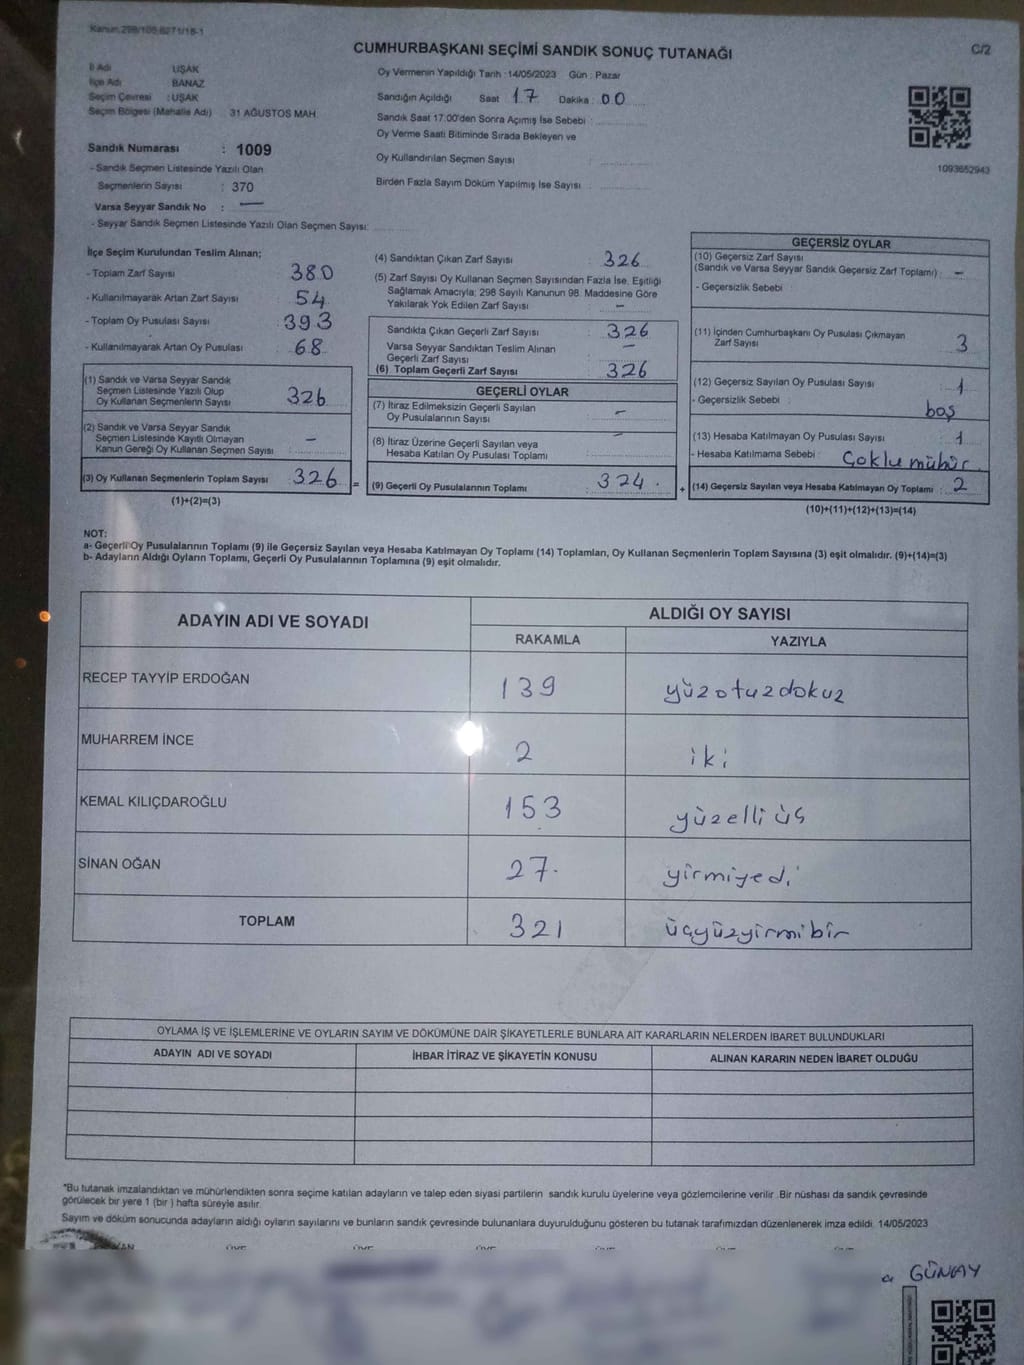 Kanun 298/105,6271/18-1
CUMHURBAŞKANI SEÇİMİ SANDIK SONUÇ TUTANAĞI
C/2
İl Adı : UŞAK
İlçe Adı : BANAZ
Seçim Çevresi : UŞAK
Seçim Bölgesi (Mahalle Adı) 31 AĞUSTOS MAH.
Sandık Numarası : 1009
- Sandık Seçmen Listesinde Yazılı Olan
Seçmenlerin Sayısı : 370
Varsa Seyyar Sandık No : —
- Seyyar Sandık Seçmen Listesinde Yazılı Olan Seçmen Sayısı:
Oy Vermenin Yapıldığı Tarih :14/05/2023 Gün : Pazar
Sandığın Açıldığı Saat 17 Dakika : 00
Sandık Saat 17:00'den Sonra Açımış İse Sebebi :
Oy Verme Saati Bitiminde Sırada Bekleyen ve
Oy Kullandırılan Seçmen Sayısı :
Birden Fazla Sayım Döküm Yapılmış İse Sayısı :
1093652943
İlçe Seçim Kurulundan Teslim Alınan;
- Toplam Zarf Sayısı : 380
- Kullanılmayarak Artan Zarf Sayısı : 54
- Toplam Oy Pusulası Sayısı : 393
- Kullanılmayarak Artan Oy Pusulası : 68
(1) Sandık ve Varsa Seyyar Sandık
Seçmen Listesinde Yazılı Olup
Oy Kullanan Seçmenlerin Sayısı : 326
(2) Sandık ve Varsa Seyyar Sandık
Seçmen Listesinde Kayıtlı Olmayan
Kanun Gereği Oy Kullanan Seçmen Sayısı : —
(3) Oy Kullanan Seçmenlerin Toplam Sayısı : 326 =
(1)+(2)=(3)
(4) Sandıktan Çıkan Zarf Sayısı : 326
(5) Zarf Sayısı Oy Kullanan Seçmen Sayısından Fazla İse, Eşitliği
Sağlamak Amacıyla; 298 Sayılı Kanunun 98. Maddesine Göre
Yakılarak Yok Edilen Zarf Sayısı : —
Sandıkta Çıkan Geçerli Zarf Sayısı : 326
Varsa Seyyar Sandıktan Teslim Alınan
Geçerli Zarf Sayısı : —
(6) Toplam Geçerli Zarf Sayısı : 326
GEÇERLİ OYLAR
(7) İtiraz Edilmeksizin Geçerli Sayılan
Oy Pusulalarının Sayısı : —
(8) İtiraz Üzerine Geçerli Sayılan veya
Hesaba Katılan Oy Pusulası Toplamı : —
(9) Geçerli Oy Pusulalarının Toplamı : 324. +
GEÇERSİZ OYLAR
(10) Geçersiz Zarf Sayısı
(Sandık ve Varsa Seyyar Sandık Geçersiz Zarf Toplamı) : —
- Geçersizlik Sebebi :
(11) İçinden Cumhurbaşkanı Oy Pusulası Çıkmayan
Zarf Sayısı : 3
(12) Geçersiz Sayılan Oy Pusulası Sayısı : 1
- Geçersizlik Sebebi : boş
(13) Hesaba Katılmayan Oy Pusulası Sayısı : 1
- Hesaba Katılmama Sebebi : Çoklu mühür
(14) Geçersiz Sayılan veya Hesaba Katılmayan Oy Toplamı : 2
(10)+(11)+(12)+(13)=(14)
NOT:
a- Geçerli Oy Pusulalarının Toplamı (9) ile Geçersiz Sayılan veya Hesaba Katılmayan Oy Toplamı (14) Toplamları, Oy Kullanan Seçmenlerin Toplam Sayısına (3) eşit olmalıdır. (9)+(14)=(3)
b- Adayların Aldığı Oyların Toplamı, Geçerli Oy Pusulalarının Toplamına (9) eşit olmalıdır.
ADAYIN ADI VE SOYADI
ALDIĞI OY SAYISI
RAKAMLA YAZIYLA
RECEP TAYYİP ERDOĞAN 139 yüzotuzdokuz
MUHARREM İNCE 2 iki
KEMAL KILIÇDAROĞLU 153 yüzelli üç
SİNAN OĞAN 27. yirmiyedi
TOPLAM 321 üçyüzyirmibir
OYLAMA İŞ VE İŞLEMLERİNE VE OYLARIN SAYIM VE DÖKÜMÜNE DAİR ŞİKAYETLERLE BUNLARA AİT KARARLARIN NELERDEN İBARET BULUNDUKLARI
ADAYIN ADI VE SOYADI İHBAR İTİRAZ VE ŞİKAYETİN KONUSU ALINAN KARARIN NEDEN İBARET OLDUĞU
*Bu tutanak imzalandıktan ve mühürlendikten sonra seçime katılan adayların ve talep eden siyasi partilerin sandık kurulu üyelerine veya gözlemcilerine verilir. Bir nüshası da sandık çevresinde
görülecek bir yere 1 (bir ) hafta süreyle asılır.
Sayım ve döküm sonucunda adayların aldığı oyların sayılarını ve bunların sandık çevresinde bulunanlara duyurulduğunu gösteren bu tutanak tarafımızdan düzenlenerek imza edildi. 14/05/2023
GÜNAY